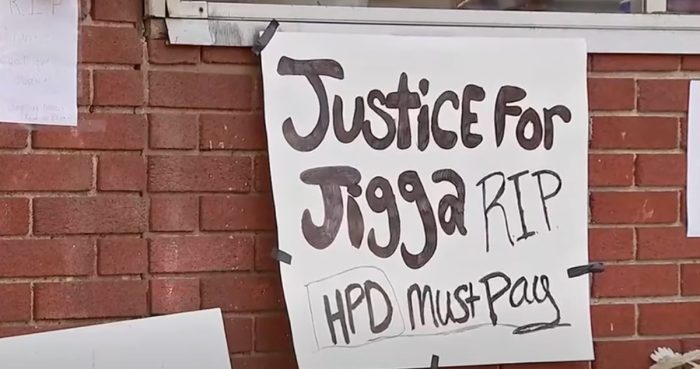 RIP
Justice For
Jigga RIP
HPD Must Pay